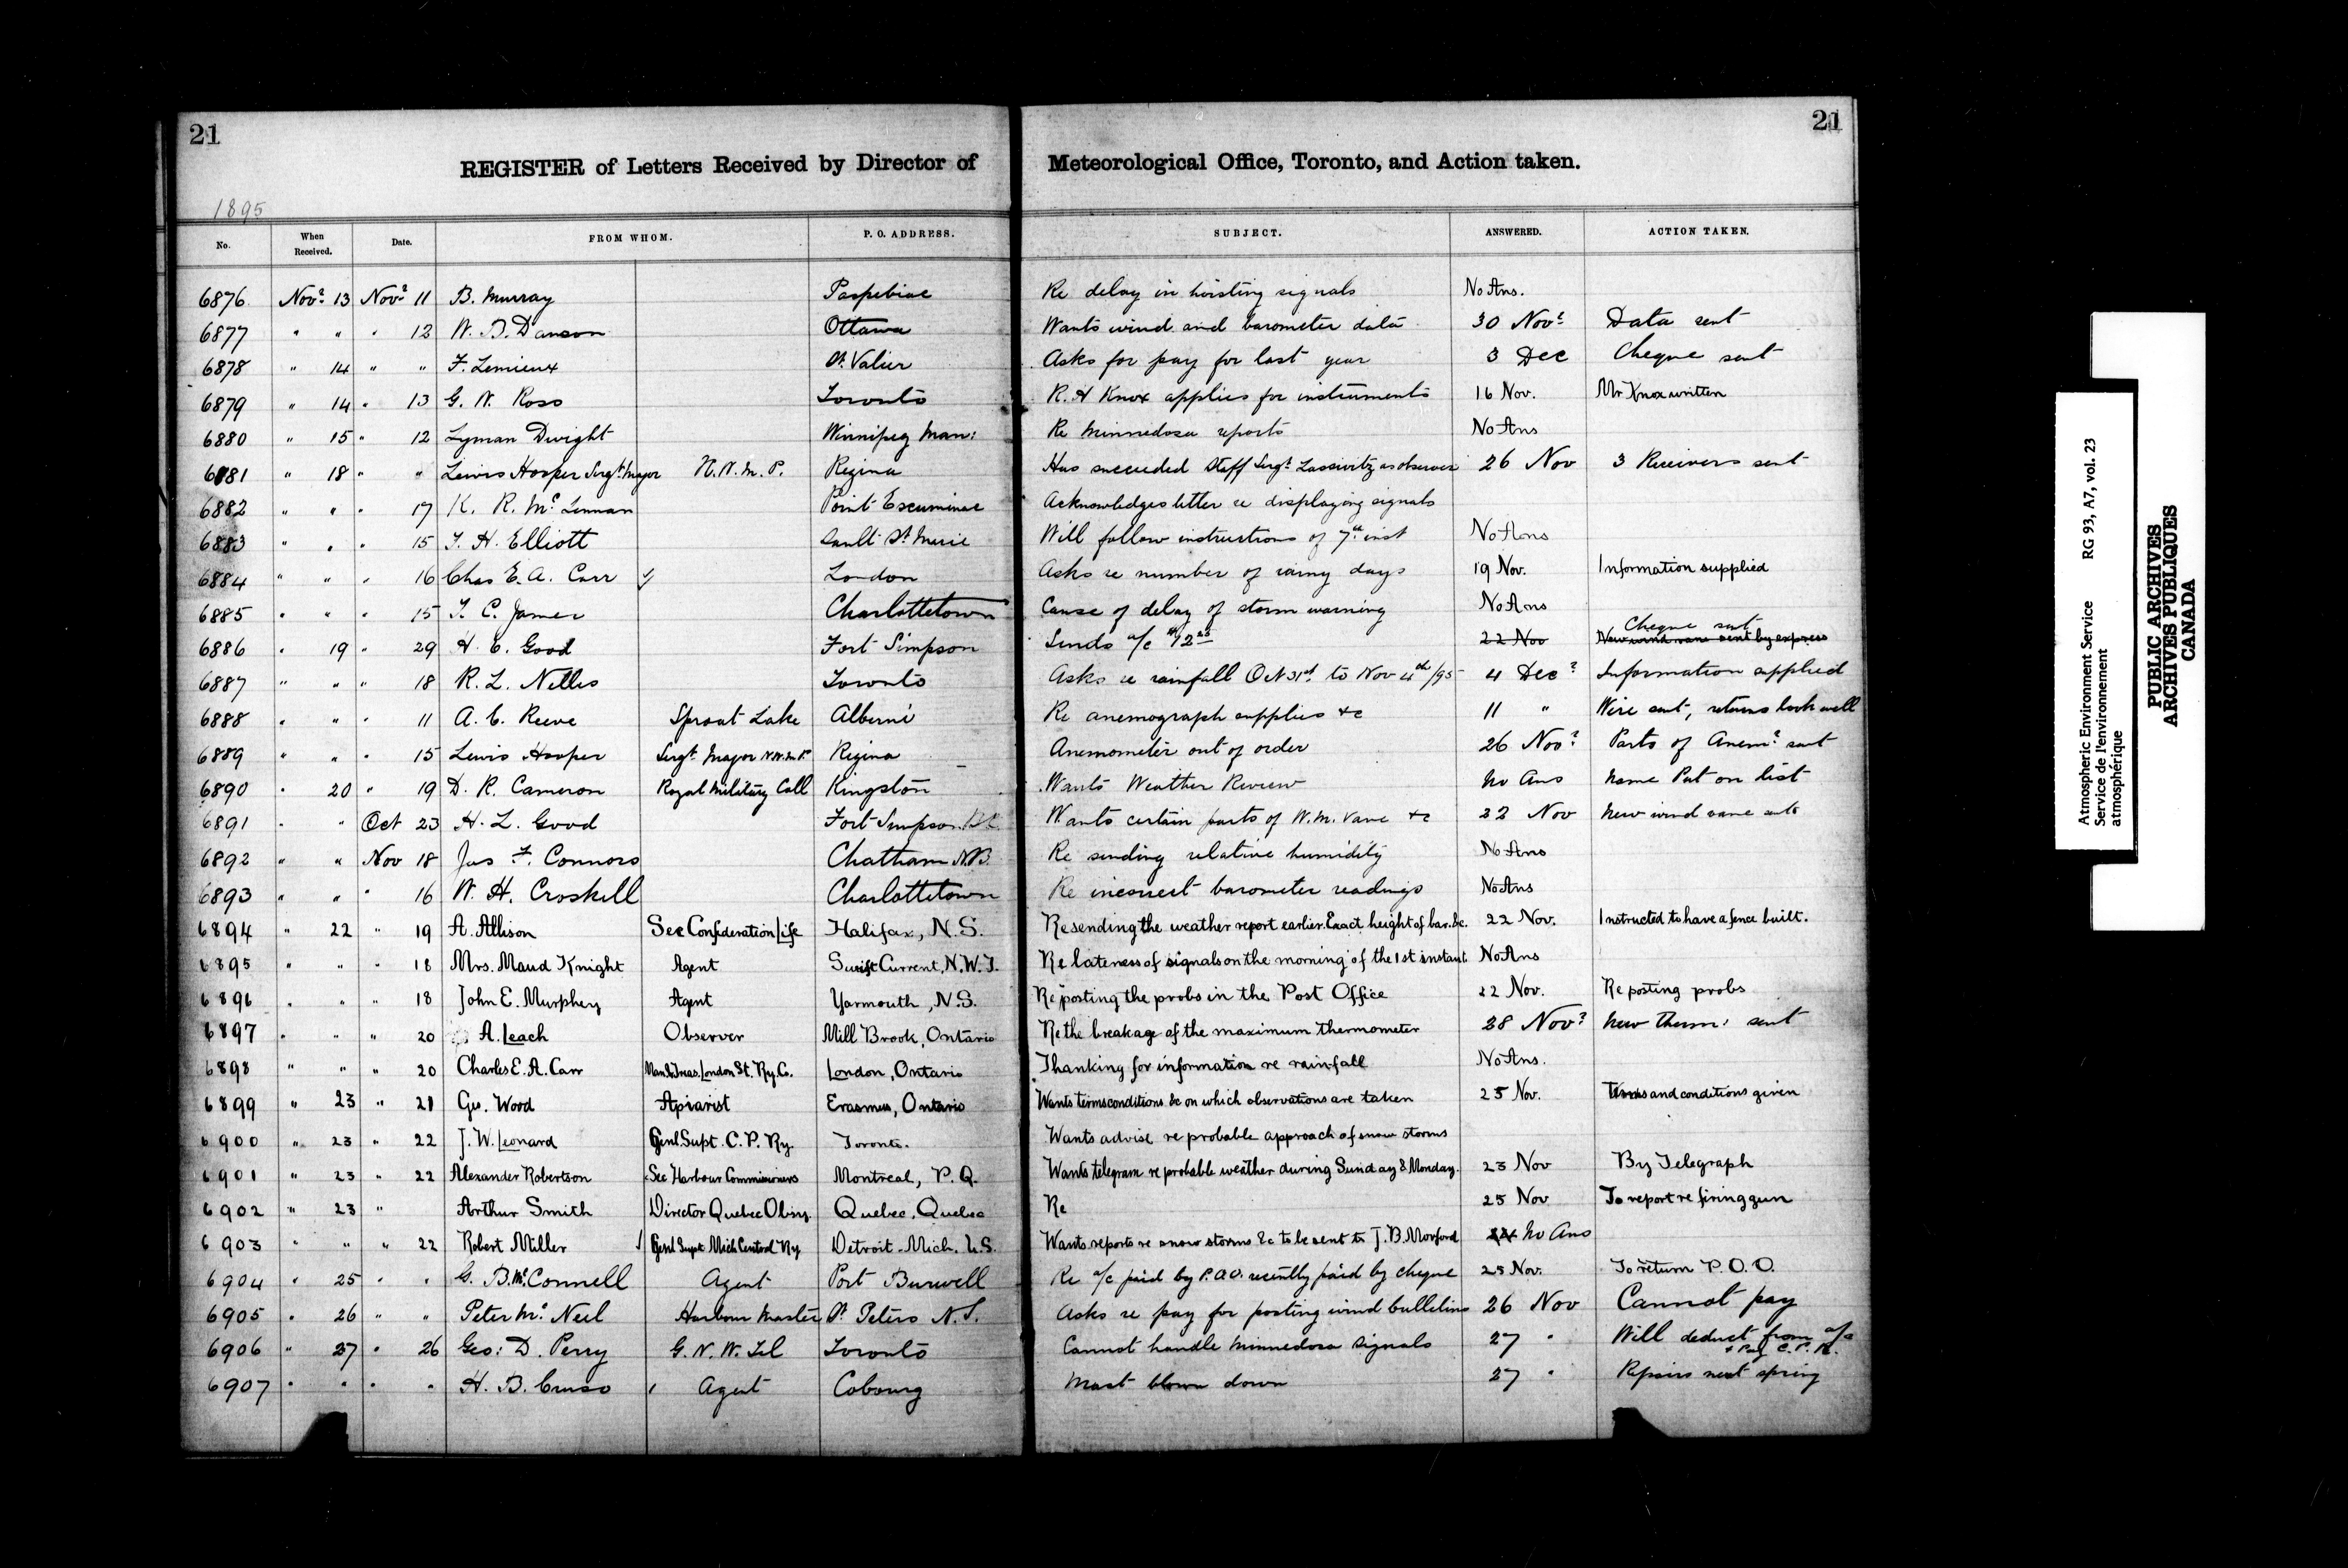 21
21
REGISTER of Letters Received by Director of Meteorological Office, Toronto, and Action taken.
1895
No. When Received. Date. FROM WHOM. P. O. ADDRESS. SUBJECT. ANSWERED. ACTION TAKEN.
6876 Novr 13 Novr 11 B. Murray Paspebiac Re delay in hoisting signals No Ans.
6877 " " " 12 W. B. Dawson Ottawa Wants wind and barometer data 30 Novr Data sent
6878 " 14 " " F. Lemieux St. Valier Asks for pay for last year 3 Dec Cheque sent
6879 " 14 " 13 G. W. Ross Toronto R. H Knox applies for instruments 16 Nov. Mr Knox written
6880 " 15 " 12 Lyman Dwight Winnipeg Man: Re Minnedosa reports No Ans
6881 " 18 " " Lewis Hooper Sergt. Major N. W. M. P. Regina Has succeeded Staff Sergt. Lassivitz as observer 26 Nov 3 Receivers sent
6882 " " " 17 K. R. McLennan Point Escuminac Acknowledges letter re displaying signals
6883 " " " 15 T. H. Elliott Sault St Marie Will follow instructions of 7th inst No Ans
6884 " " " 16 Chas E. A. Carr London Asks re number of rainy days 19 Nov. Information supplied
6885 " " " 15 T. C. James Charlottetown Cause of delay of storm warning No Ans
6886 " 19 " 29 H. C. Good Fort Simpson Sends a/c 22 Nov New wind vane sent by express Cheque sent
6887 " " " 18 R. L. Nelles Toronto Asks re rainfall Oct 31st. to Nov 4th/95 4 Decr Information supplied
6888 " " " 11 A. C. Reeve Sproat Lake Alberni Re anemograph supplies &c 11 " Wire sent, returns look well
6889 " " " 15 Lewis Hooper Sergt. Major N.W.M.P. Regina Anemometer out of order 26 Novr Parts of Anemr sent
6890 " 20 " 19 D. R. Cameron Royal Military Coll Kingston Wants Weather Review No Ans Name Put on list
6891 " " Oct 23 H. L. Good Fort Simpson B.C. Wants certain parts of W.M. Vane &c 22 Nov New wind vane sent
6892 " " Nov 18 Jas F. Connors Chatham N.B. Re sending relative humidity No Ans
6893 " " " 16 W. H. Croskill Charlottetown Re incorrect barometer readings No Ans
6894 " 22 " 19 A. Allison Sec Confederation Life Halifax, N.S. Re sending the weather report earlier. Exact height of bar. &c. 22 Nov. Instructed to have a fence built.
6895 " " " 18 Mrs. Maud Knight Agent Swift Current, N.W.T. Re lateness of signals on the morning of the 1st instant. No Ans
6896 " " " 18 John E. Murphey Agent Yarmouth, N.S. Re posting the probs in the Post Office 22 Nov. Re posting probs
6897 " " " 20 A. Leach Observer Mill Brook, Ontario Re the breakage of the maximum thermometer 28 Novr New therm: sent
6898 " " " 20 Charles E. A. Carr Man. & Treas. London St. Ry. Co. London, Ontario Thanking for information re rainfall No Ans.
6899 " 23 " 21 Geo. Wood Apiarist Erasmus, Ontario Wants terms conditions &c on which observations are taken 25 Nov. Terms and conditions given
6900 " 23 " 22 J. W. Leonard Genl Supt. C. P. Ry. Toronto. Wants advise re probable approach of snow storms
6901 " 23 " 22 Alexander Robertson Sec Harbour Commissioners Montreal, P.Q. Wants telegram re probable weather during Sunday & Monday. 23 Nov By Telegraph
6902 " 23 " Arthur Smith Director Quebec Obsry. Quebec, Quebec Re 25 Nov To report re firing gun
6903 " " " 22 Robert Miller Genl Supt Mich Central Ry Detroit. Mich. U.S. Wants reports re snow storms &c to be sent to J. B. Morford No Ans
6904 " 25 " " G. B. McConnell Agent Port Burwell Re a/c paid by P.O.O. recently paid by cheque 25 Nov. To return P.O.O.
6905 " 26 " " Peter McNeil Harbour Master St Peters N.S. Asks re pay for posting wind bulletins 26 Nov Cannot pay
6906 " 27 " 26 Geo: D. Perry G. N. W. Tel Toronto Cannot handle Minnedosa signals 27 " Will deduct from a/c & Pay C. P. R.
6907 " " " " H. B. Cruso Agent Cobourg Mast blown down 27 " Repairs next spring
Atmospheric Environment Service RG 93, A7, vol. 23
Service de l'environnement
atmosphérique
PUBLIC ARCHIVES
ARCHIVES PUBLIQUES
CANADA